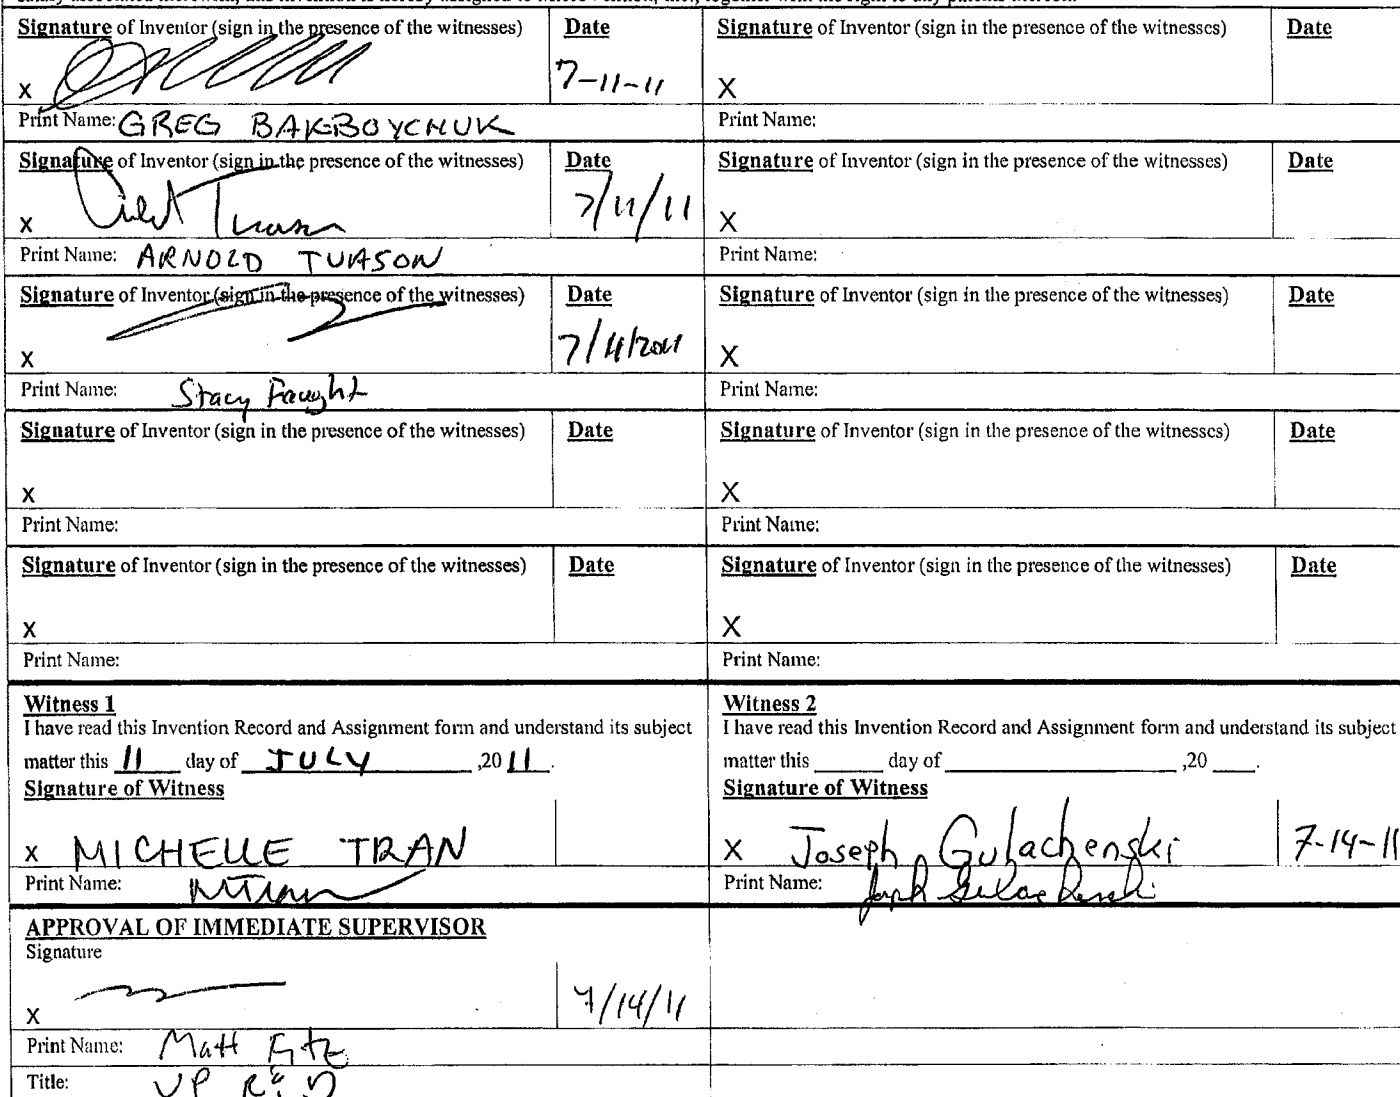 Signature of Inventor (sign in the presence of the witnesses) Date Signature of Inventor (sign in the presence of the witnesses) Date
X 7-11-11 X
Print Name: GREG BAKBOYCHUK Print Name:
Signature of Inventor (sign in the presence of the witnesses) Date Signature of Inventor (sign in the presence of the witnesses) Date
X Tuason 7/11/11 X
Print Name: ARNOLD TUASON Print Name:
Signature of Inventor (sign in the presence of the witnesses) Date Signature of Inventor (sign in the presence of the witnesses) Date
X 7/11/2011 X
Print Name: Stacy Faught Print Name:
Signature of Inventor (sign in the presence of the witnesses) Date Signature of Inventor (sign in the presence of the witnesses) Date
X X
Print Name: Print Name:
Signature of Inventor (sign in the presence of the witnesses) Date Signature of Inventor (sign in the presence of the witnesses) Date
X X
Print Name: Print Name:
Witness 1
I have read this Invention Record and Assignment form and understand its subject
matter this 11 day of JULY ,20 11.
Signature of Witness
X MICHELLE TRAN
Print Name: MTran
Witness 2
I have read this Invention Record and Assignment form and understand its subject
matter this ____ day of ____ ,20 ____.
Signature of Witness
X Joseph Gulachenski 7-14-11
Print Name: Joseph Gulachenski
APPROVAL OF IMMEDIATE SUPERVISOR
Signature
X 7/14/11
Print Name: Matt Fitz
Title: VP R&D